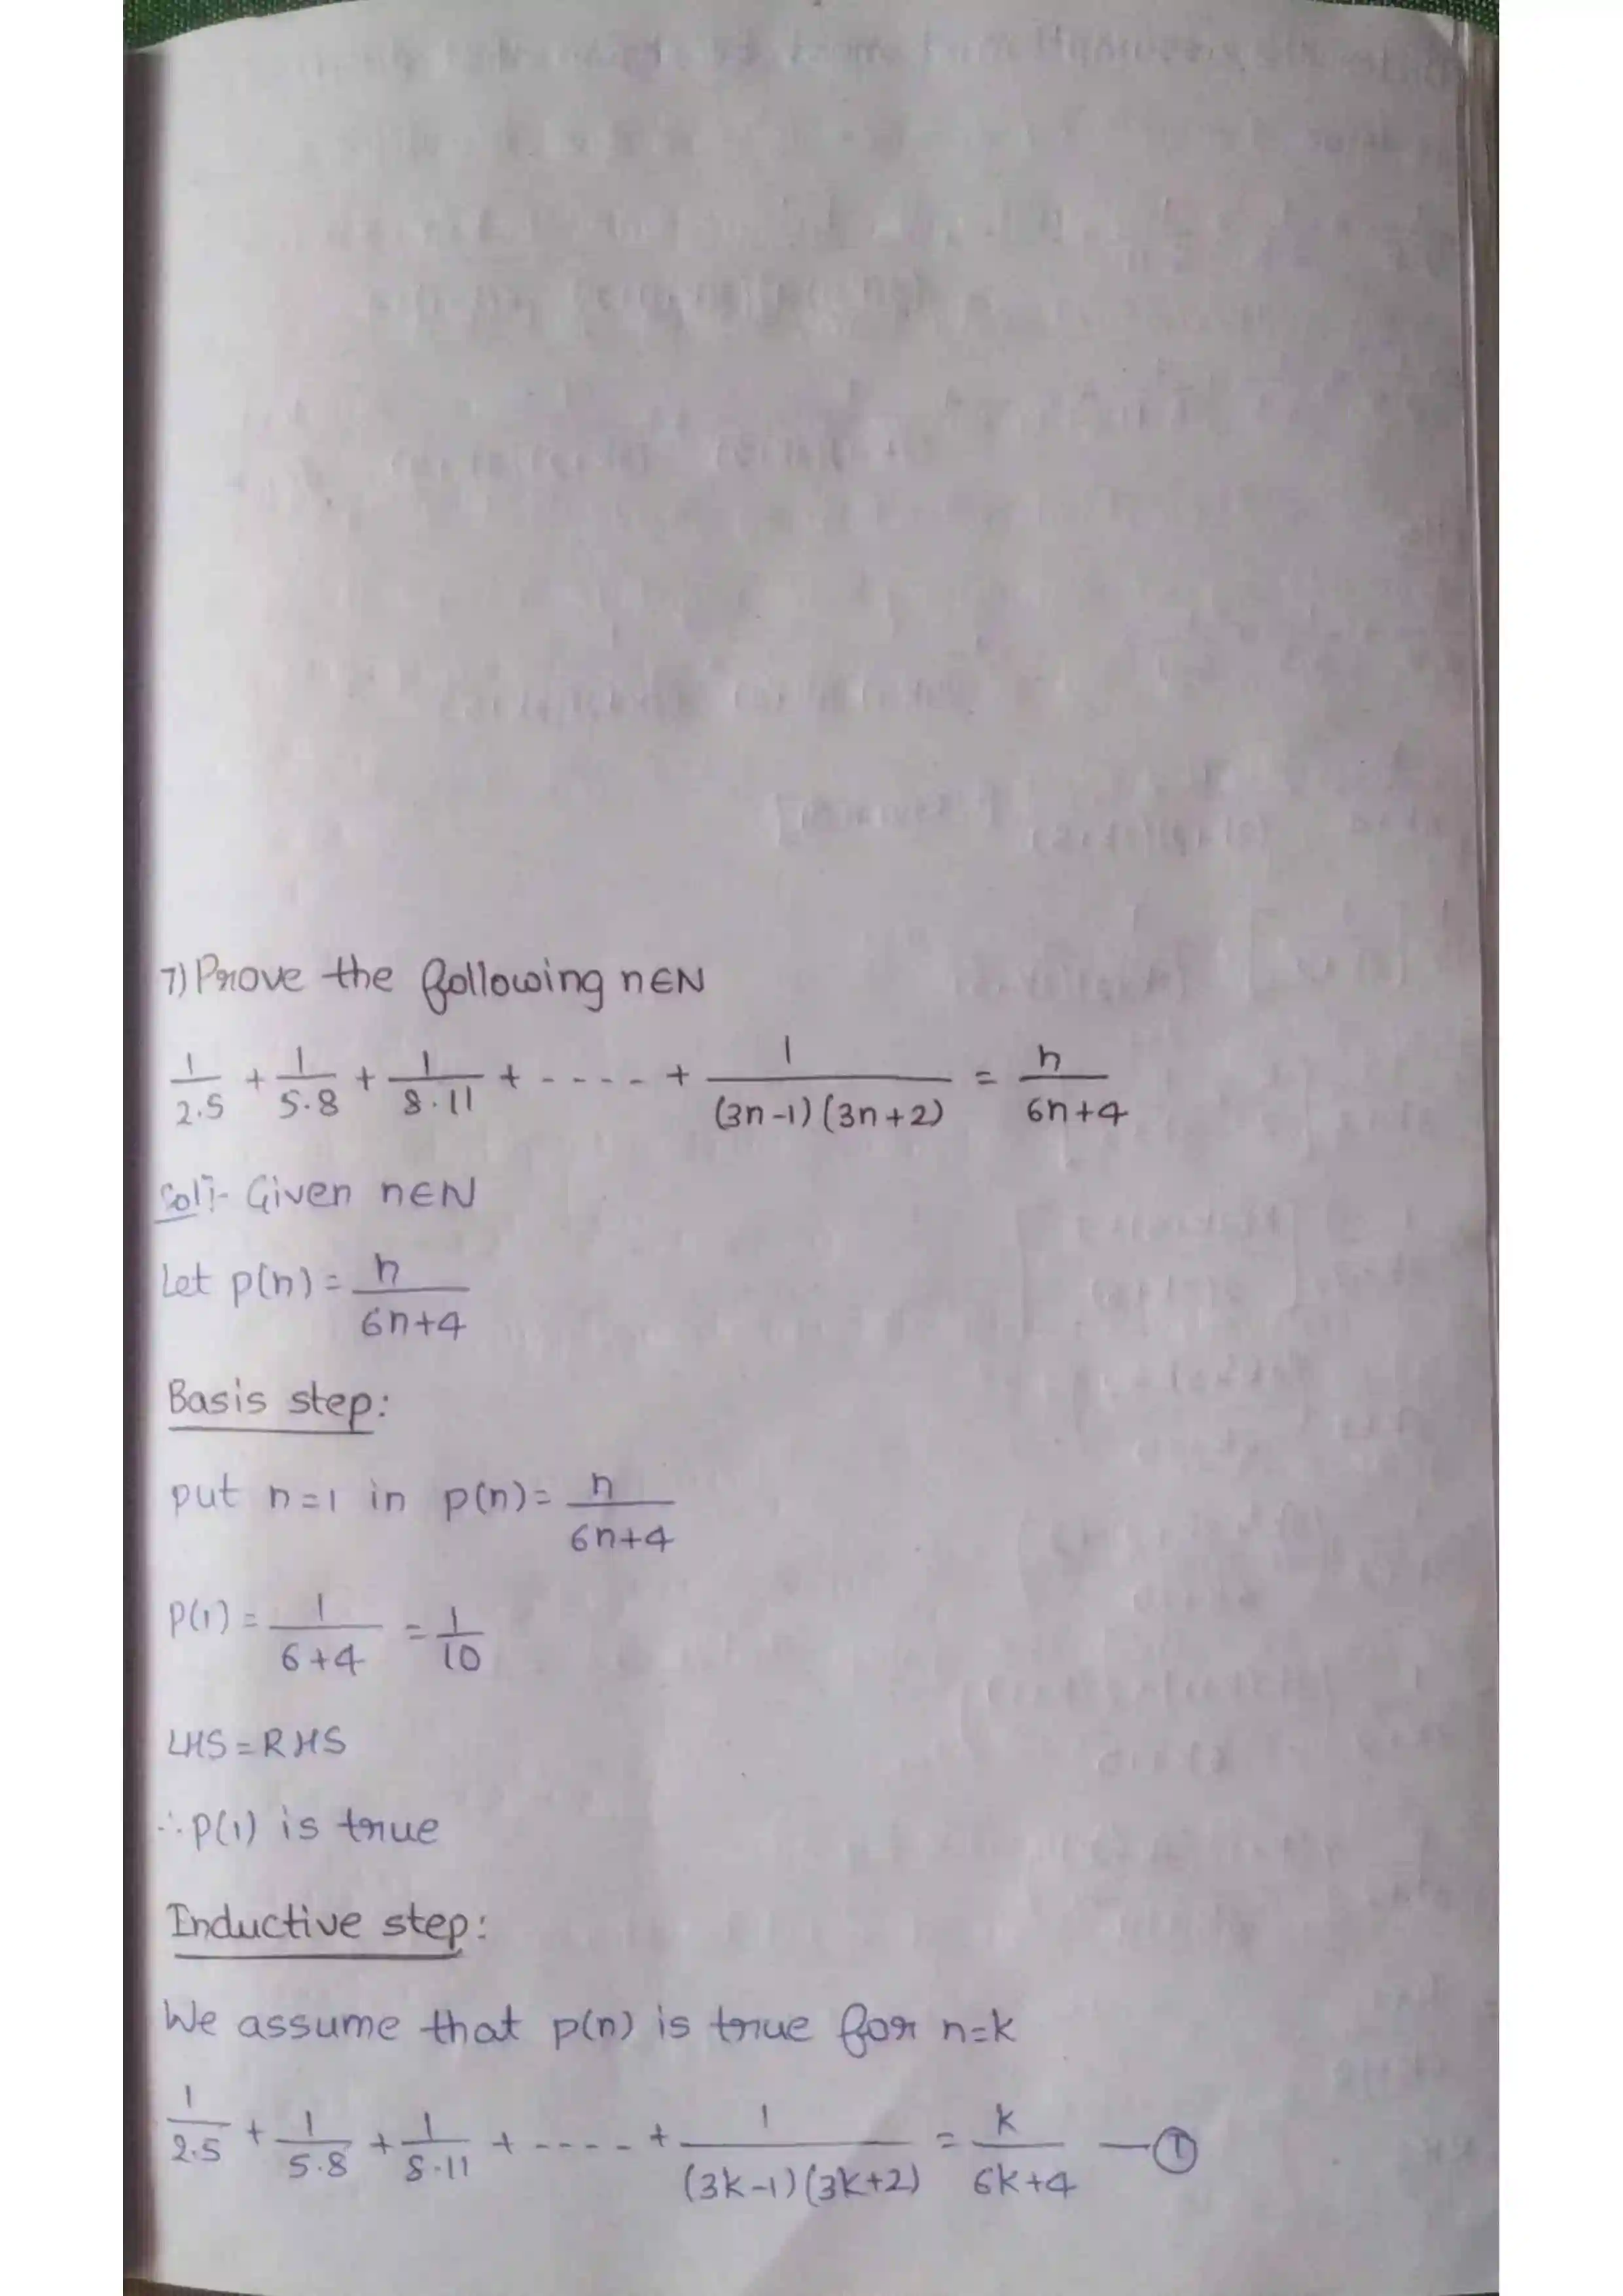 7) Prove the following n∈N
1/2.5 + 1/5.8 + 1/8.11 + ---- + 1/(3n-1)(3n+2) = n/6n+4
Sol:- Given n∈N
Let p(n) = n/6n+4
Basis step:
put n=1 in p(n) = n/6n+4
P(1) = 1/6+4 = 1/10
LHS = RHS
∴ P(1) is true
Inductive step:
We assume that p(n) is true for n=k
1/2.5 + 1/5.8 + 1/8.11 + ---- + 1/(3k-1)(3k+2) = k/6k+4 —①